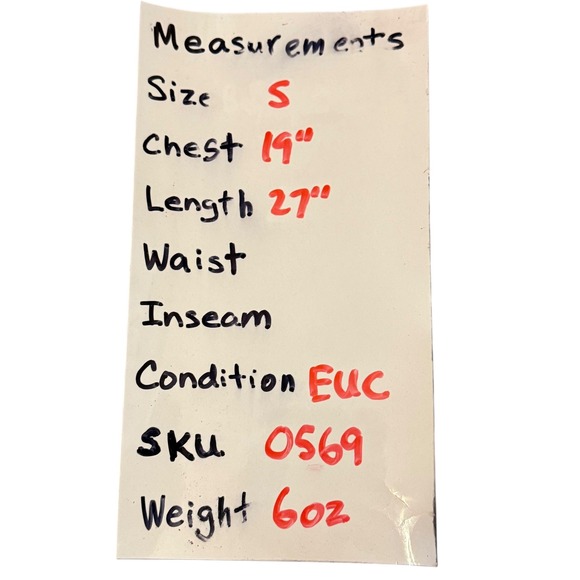 Measurements
Size S
Chest 19"
Length 27"
Waist
Inseam
Condition EUC
SKU. 0569
Weight 6oz